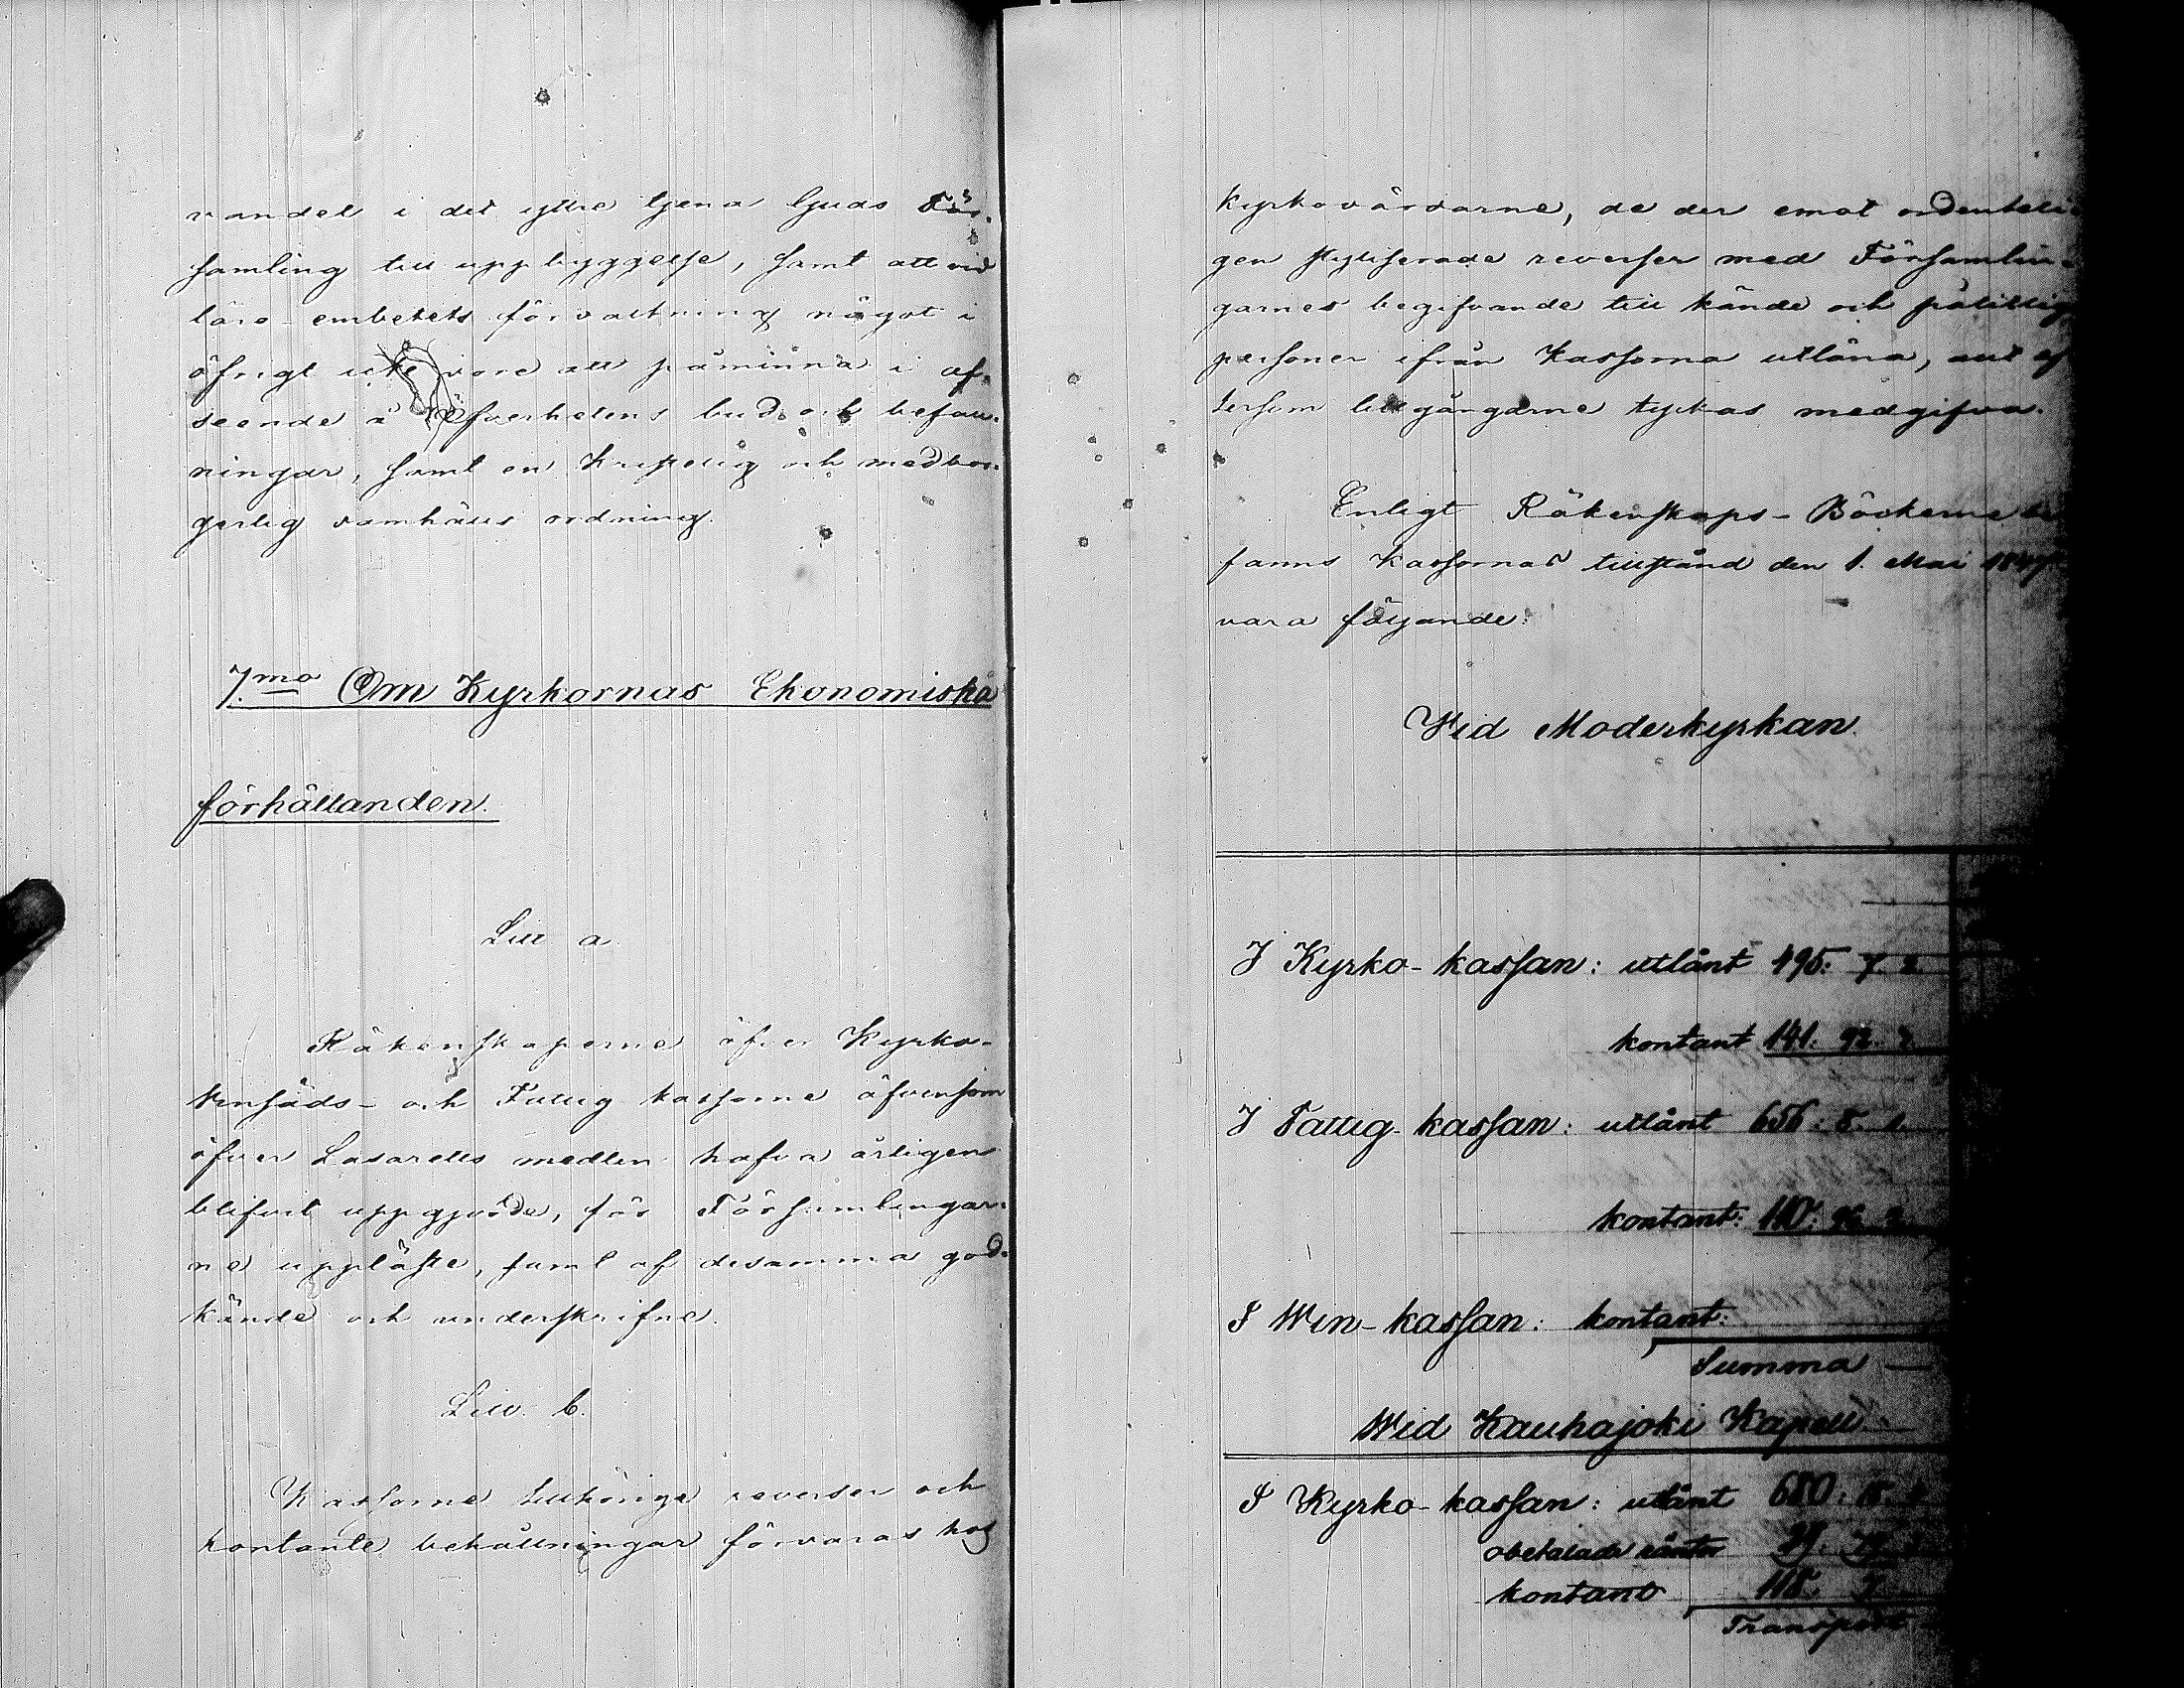 vandel i det yttre tjena Guds För-
samling till uppbyggelse, samt att vid
läro-embetets förvaltning något i
öfrigt icke vore att påminna i af-
seende å Öfverhetens bud och befall-
ningar, samt en kristelig och medbor-
gerlig samhälls ordning.
7.mo Om Kyrkornas Ekonomiska
förhållanden.
Litt a.
Räkenskaperne öfver Kyrko-
Vinsäds- och Fattig kassorne äfvensom
öfver Lasaretts medlen hafva årligen
blifvit uppgjorde, för Församlingar-
ne uppläste, samt af desamma god-
kände och underskrifne.
Litt. b.
Kassorne tillhörige reverser och
kontante behållningar förvaras hos
Kyrkovärdarne, de der emot ordenteli-
gen stytiserade reverser med Församlin-
garnes begifvande till kände och pålitlig
personer ifrån Kassorna utlåna, allt ef
tersom tillgångarne tyckas medgifva.
Enligt Räkenskaps-Böckerne be
fanns Kassornas tillstånd den 1. Maj 1847
vara följande:
Vid Moderkyrkan.
I Kyrko-kassan: utlånt 495: 7. 2.
kontant 141. 92. 2.
I Fattig-kassan: utlånt 656: 8. 1.
kontant: 110: 96. 2.
I Win-kassan: kontant:
Summa
Wid Kauhajoki Kapell.
I Kyrko-kassan: utlånt 680: 15.
obetalade räntor 29. 79.
kontant 118. 7.
Transport